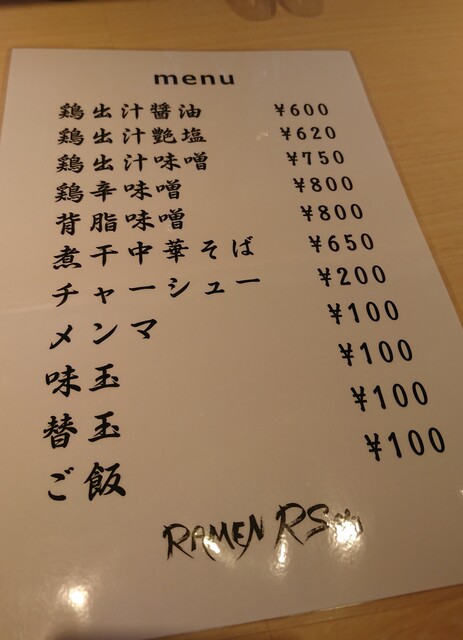 menu
鶏出汁醤油 ¥600
鶏出汁艶塩 ¥620
鶏出汁味噌 ¥750
鶏辛味噌 ¥800
背脂味噌 ¥800
煮干中華そば ¥650
チャーシュー ¥200
メンマ ¥100
味玉 ¥100
替玉 ¥100
ご飯 ¥100
RAMEN RS